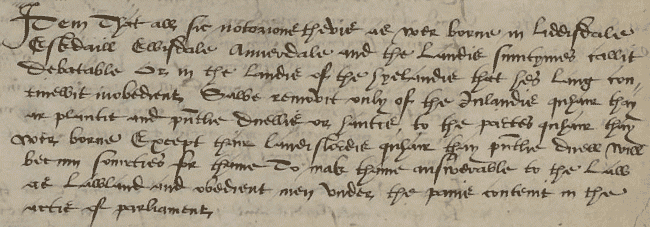 Item That all sic notorious thevis as wer borne in Liddisdaile
Eskdaill Ewisdale Annerdale and the Landis sumtymes callit
Debatable Or in the Landis of the hyelandis that hes lang con-
tenewit inobedient Salbe removit only of the Inlandis quhair thay
ar plantit and pntlie duellis or hantis, to the partes quhair thay
wer borne Except thair landislordis quhair thay pntlie duell will
becum souerties for thame To mak thame answerable to the Law
as Lawland and obedient men Under the panis contenit in the
actis of parliament